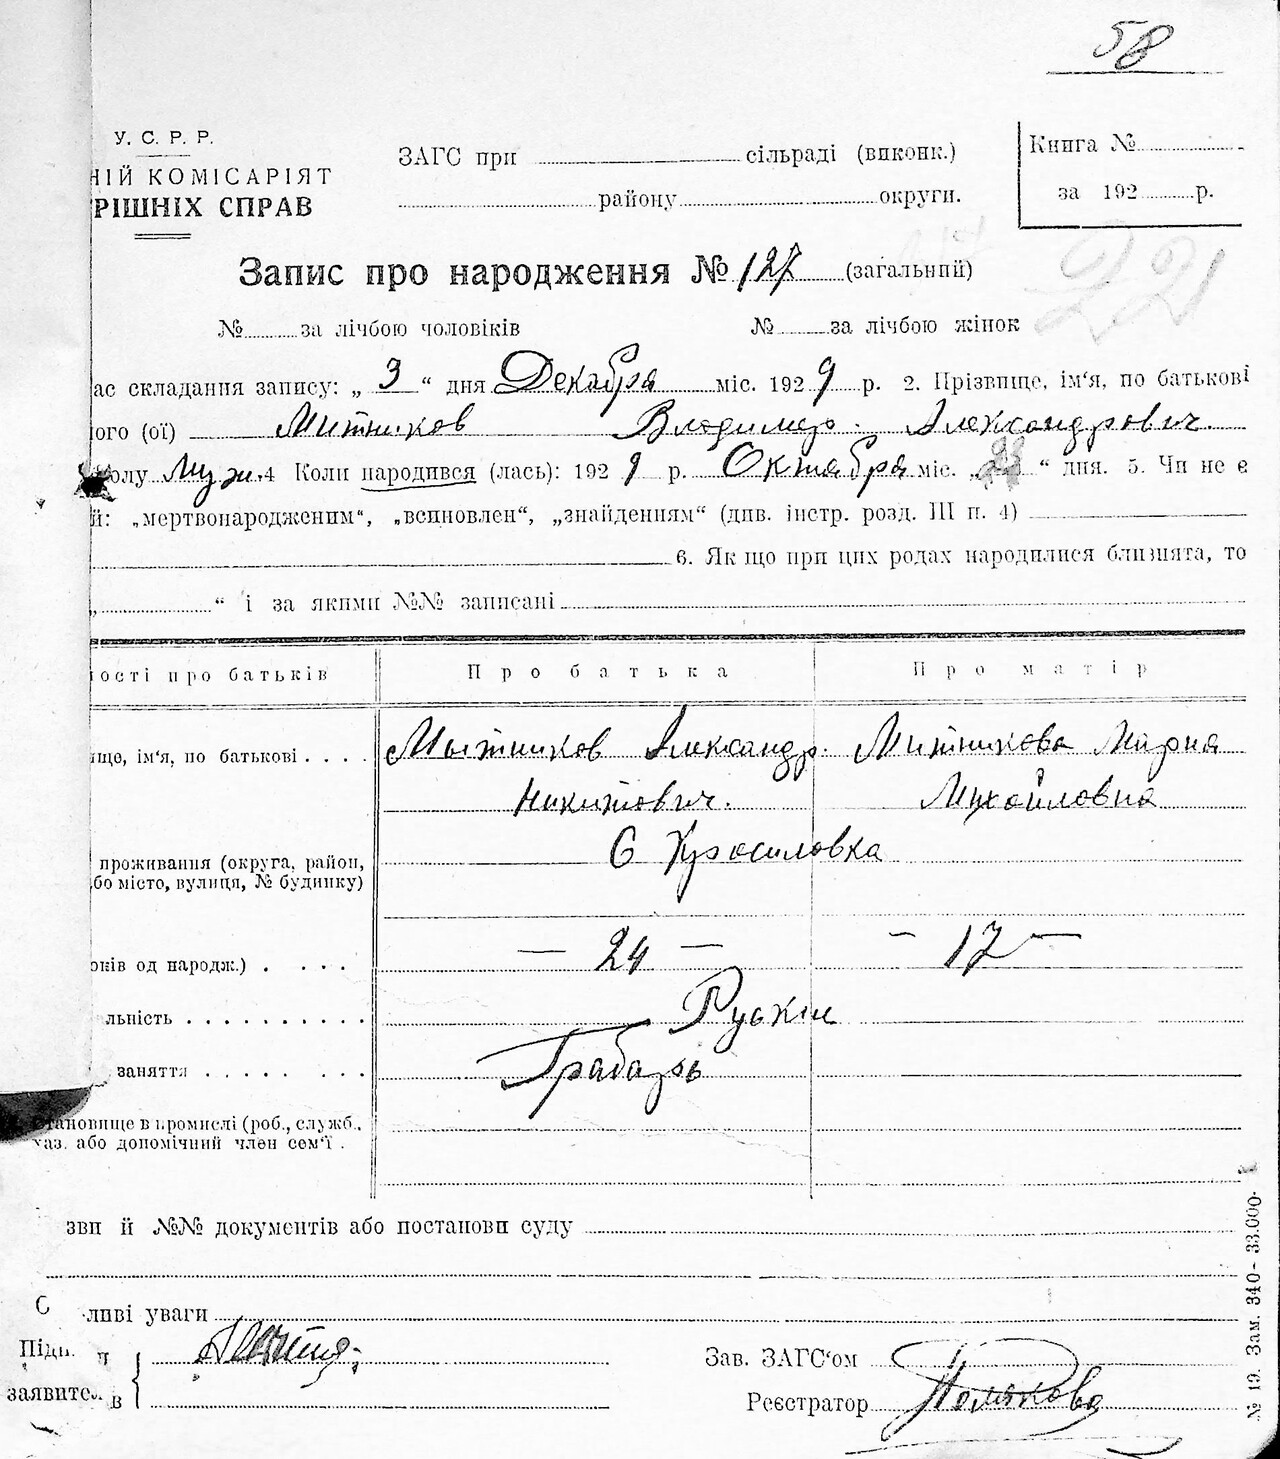 58
У. С. Р. Р.
НІЙ КОМІСАРІЯТ
РІШНІХ СПРАВ
ЗАГС при сільраді (виконк.)
району округи.
Книга №
за 192 р.
Запис про народження № 127 (загальний)
221
№ за лічбою чоловіків № за лічбою жінок
ас складання запису: „ 3 “ дня Декабря міс. 1929 р. 2. Прізвище, ім‘я, по батькові
ого (ої) Митников Владимир. Александрович.
олу муж. 4 Коли народився (лась): 1929 р. Октября міс. „ 23 “ дня. 5. Чи не є
й: „мертвонародженим“, „всиновлен“, „знайденням“ (див. інстр. розд. III п. 4)
6. Як що при цих родах народилися близнята, то
„ “ і за якими №№ записані
ості про батьків Про батька Про матір
ище, ім‘я, по батькові . . . . Мытников Александр. Митникова Мария
Никитович. Михайловна
проживання (округа, район,
бо місто, вулиця, № будинку)
С Красиловка
оків од народж.) . . . . — 24 — – 17 –
льність . . . . . . . . . . Руские
заняття . . . . . . . .
тановище в промислі (роб., служб.,
хаз. або допомічний член сем‘ї .
зви й №№ документів або постанови суду
О ливі уваги
Підп.
заявител в
Зав. ЗАГС‘ом
Реєстратор Полякова
№ 19. Зам. 340- 33.000-